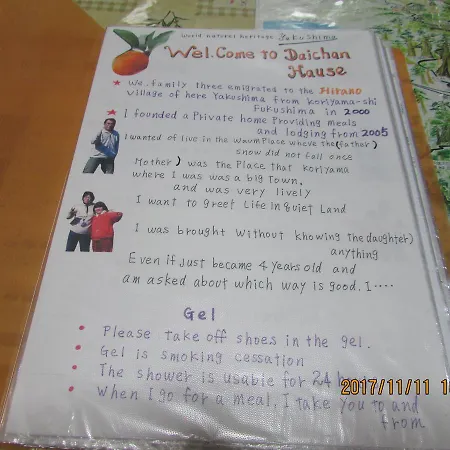 world natural heritage Yakushima
Wel.Come to Daichan
Hause
★ We. family three emigrates to the Hirano
Village of here Yakushima from Koriyama-shi
Fukushima in 2000
★ I founded a Private home Providing meals
and lodging from 2005
I wanted of live in the warm Place wheve the (father)
snow did not fall once
Mother) was the Place that Koriyama
where I was was a big Town.
and was very lively
I want to greet Life in Quiet Land
I was brought without khowing the daughter)
anything
Even if Just became 4 years old and
am asked about which way is good. I‥‥
Gel
• Please take off shoes in the gel.
• Gel is smoking cessation
• The shower is usable for 24
• When I go for a meal. I take you to and
from
2017/11/11 1